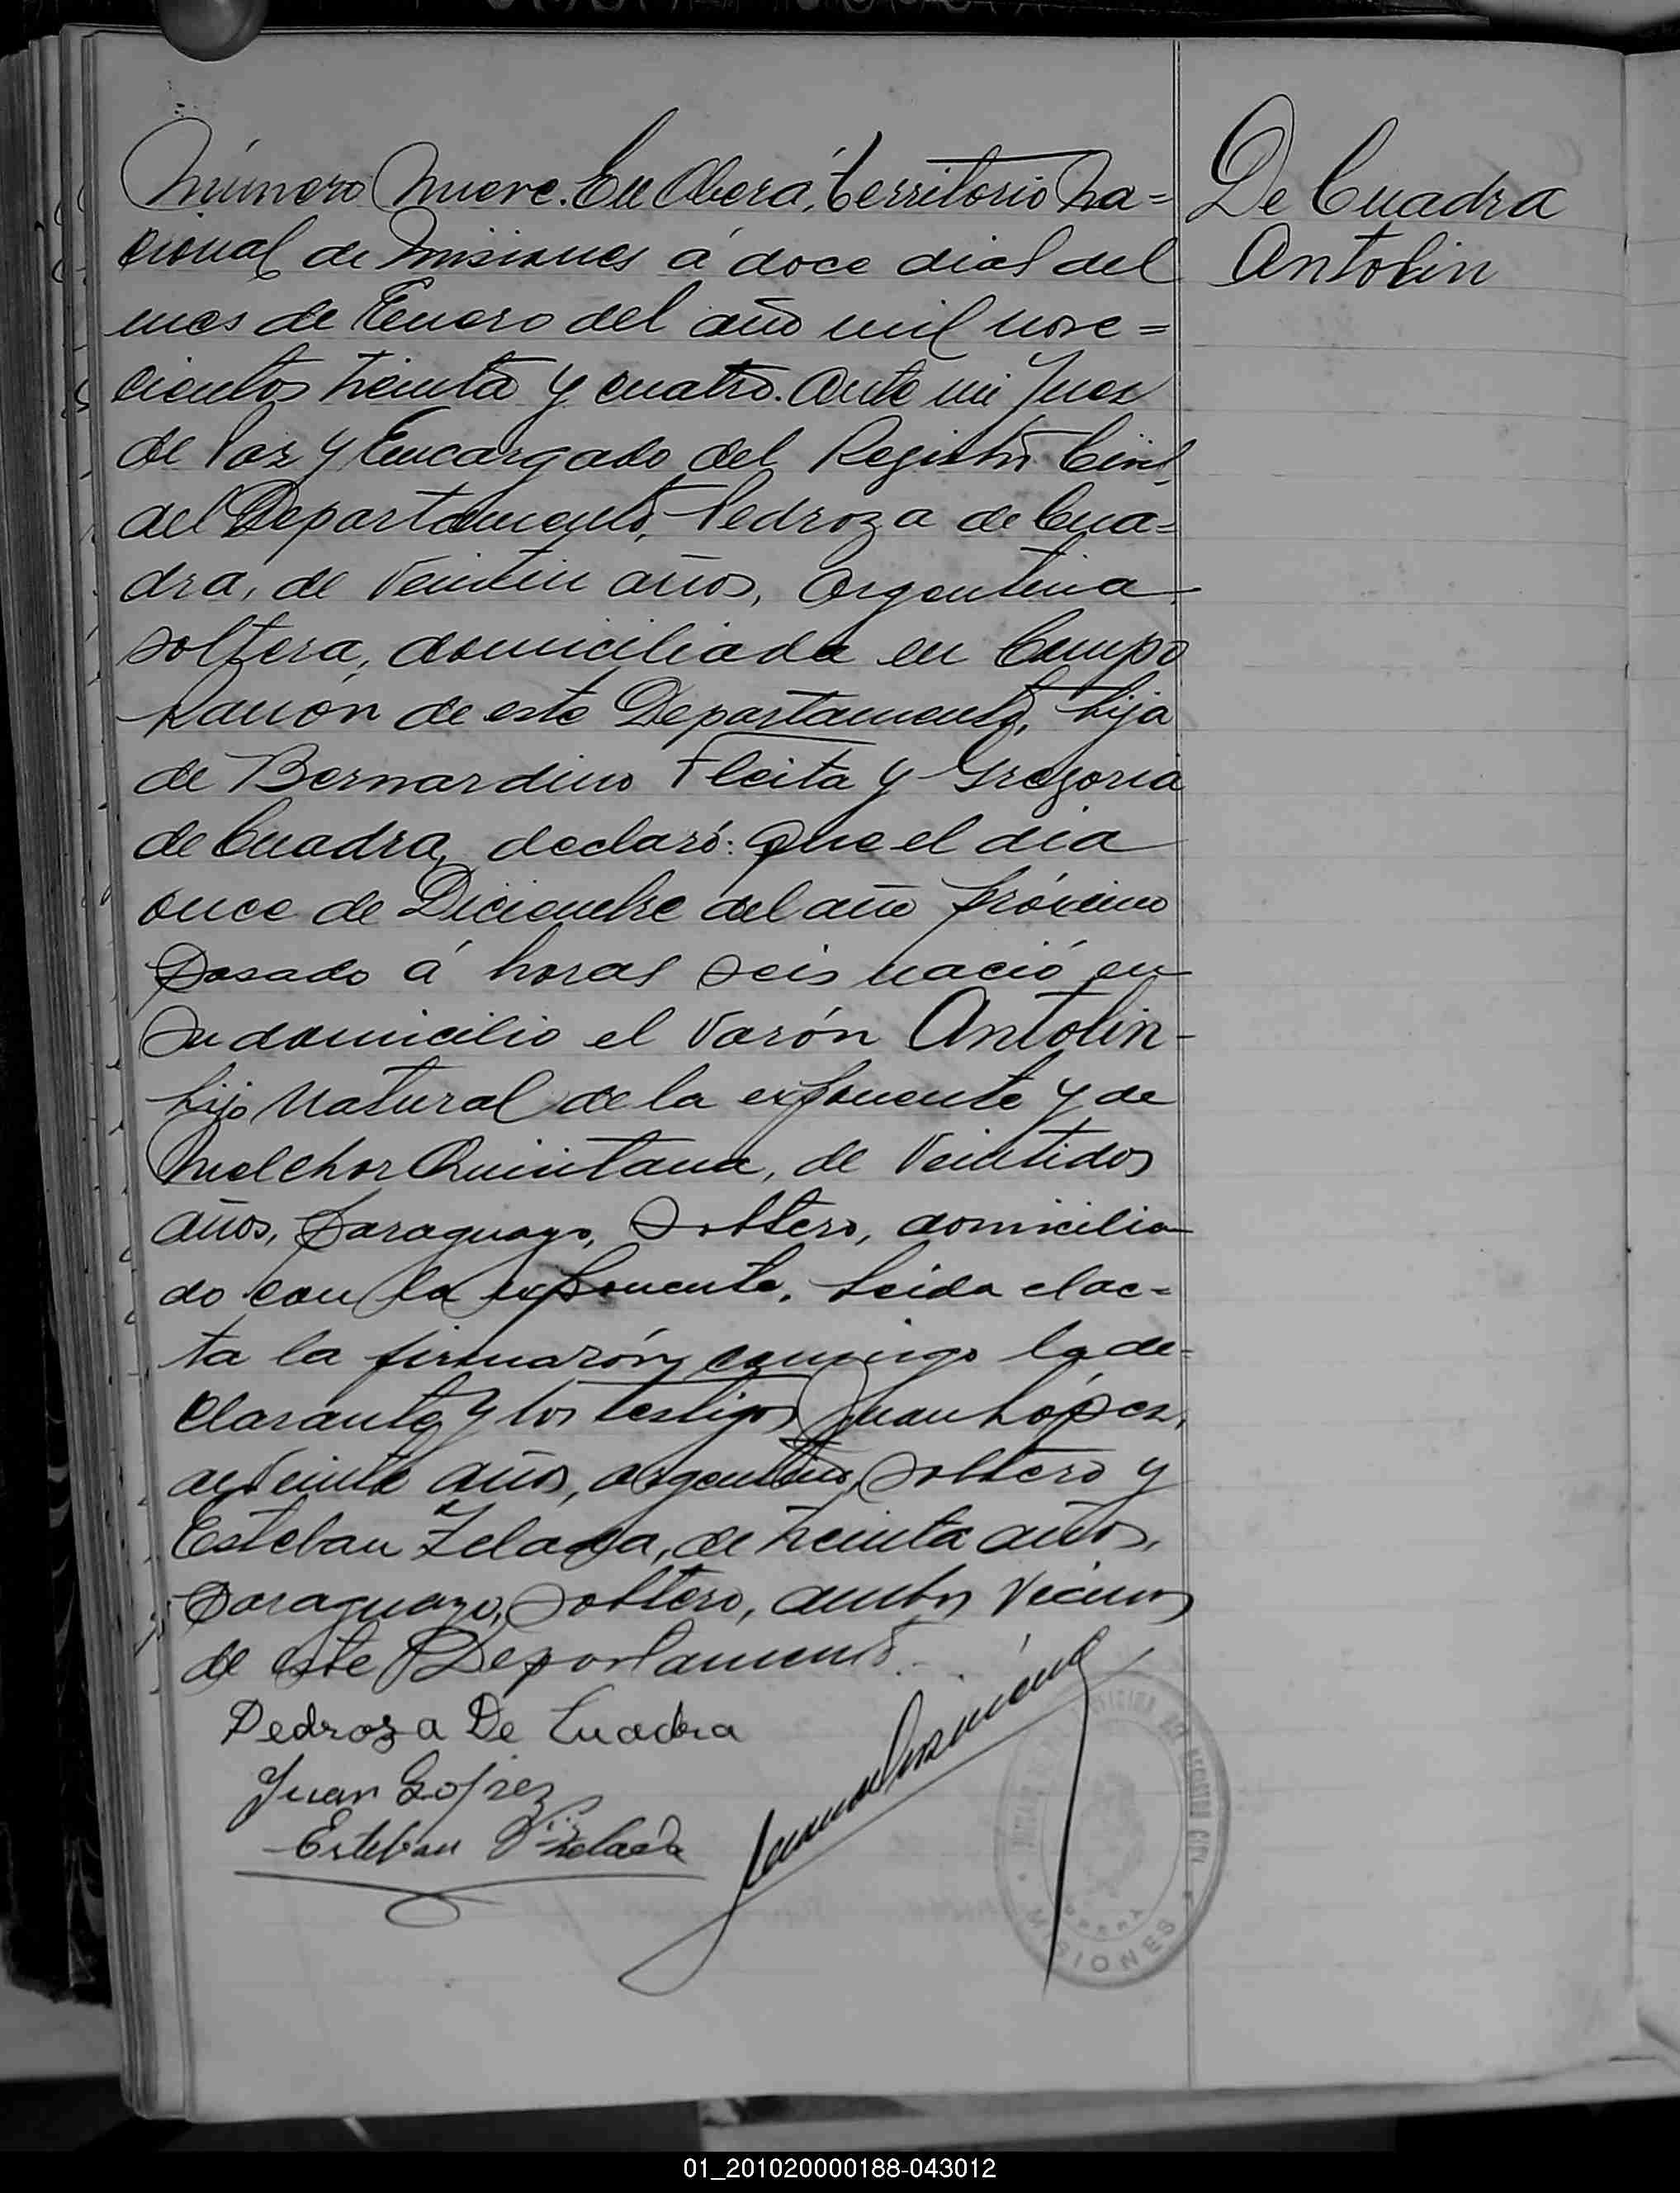 Número Nueve. En Oberá, territorio Na=
cional de Misiones á doce dias del
mes de Enero del año mil nove=
cientos treinta y cuatro. Ante mi Juez
de Paz y Encargado del Registro Civil
del Departamento, Pedroza de Cua=
dra, de Veintiun años, Argentina
soltera, domiciliada en Campo
Ramón de este Departamento, hija
de Bernardino Fleita y Gregoria
de Cuadra, declaró: Que el dia
once de Diciembre del año próximo
pasado á horas seis nació en
su domicilio el Varón Antolin-
hijo Natural de la exponente y de
Melchor Quintana, de Veintidos
años, paraguayo, Soltero, domicilia
do con la exponente. Leida el ac=
ta la firmarón conmigo la de=
clarante y los testigos Juan López,
de Veinte años, argentino, soltero y
Esteban Zelada, de treinta años,
paraguayo, soltero, ambos Vecinos
de este Departamento.
Pedroza De Cuadra
Juan Lopez
Esteban
De Cuadra
Antolin
REGISTRO CIVIL
MISIONES
01_201020000188-043012